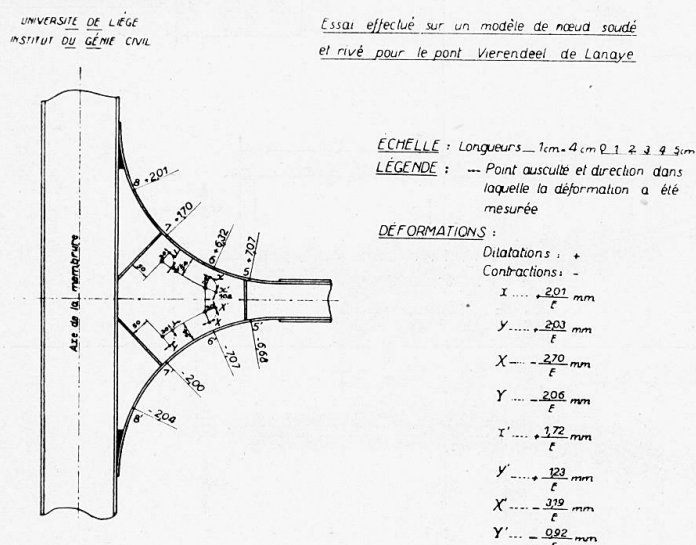 UNIVERSITÉ DE LIÉGE
INSTITUT DU GÉNIE CIVIL
Essai effectué sur un modèle de nœud soudé
et rivé pour le pont Vierendeel de Lanaye
ECHELLE : Longueurs 1cm=4cm 0 1 2 3 4 5cm
LÉGENDE : --- Point ausculté et direction dans
laquelle la déformation a été
mesurée
DÉFORMATIONS :
Dilatations : +
Contractions : -
x .... + 2,01/E mm
y .... + 2,03/E mm
X --- - 2,70/E mm
Y .... - 2,06/E mm
x' .... + 1,72/E mm
y' .... + 1,23/E mm
X' .... - 3,19/E mm
Y' .... - 0,92/E
Axe de la membrure
8 +2,01
7 +1,70
6 +6,32
5 +7,07
5' -6,68
6' -7,07
7' -2,00
8' -2,04